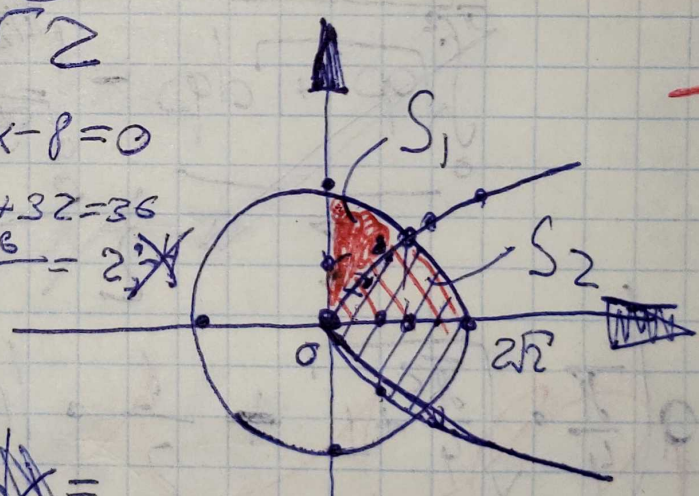 √2
x-8=0
+32=36
6
= 2;
S₁
S₂
0
2√2
=